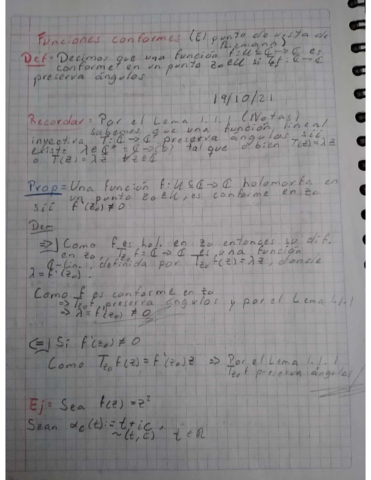 Funciones conformes (El punto de vista de Riemann)
Def = Decimos que una función f: U ⊆ ℂ → ℂ es
conforme en un punto z₀ ∈ U si
preserva ángulos
19/10/21
Recordar = Por el Lema 1.1.1 (Notas)
Sabemos que una función lineal
inyectiva T: ℂ → ℂ preserva ángulos sii
existe λ ∈ ℂ* = ℂ - {0} tal que o bien T(z) = λz
o T(z) = λz̄ ∀z ∈ ℂ
Prop = Una función f: U ⊆ ℂ → ℂ holomorfa en
un punto z₀ ∈ U, es conforme en z₀
sii f'(z₀) ≠ 0
Dem
⇒) Como f es hol. en z₀ entonces es dif.
en z₀, Tz₀f: ℂ → ℂ es una función
ℂ-lin., definida por Tz₀f(z) = λz, donde
λ = f'(z₀).
Como f es conforme en z₀
⇒ Tz₀f preserva ángulos y por el Lema 1.1.1
⇒ λ = f'(z₀) ≠ 0
⇐) Si f'(z₀) ≠ 0
Como Tz₀f(z) = f'(z₀)z ⇒ Por el Lema 1.1.1
Tz₀f preserva ángulos
Ej = Sea f(z) = z²
Sean α_c(t) = t + ic,
~(t, c) t ∈ ℝ